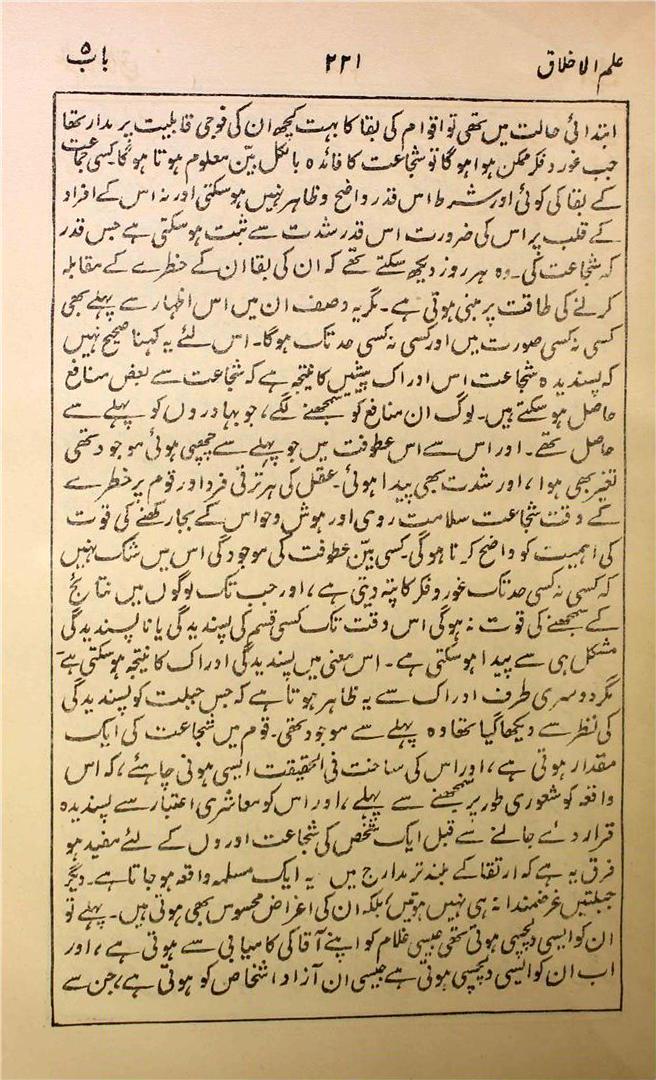 علم الاخلاق ۲۲۱ باب ۵
ابتدائی حالت میں تھی تو اقوام کی بقا کا بہت کچھ ان کی فوجی قابلیت پر مدار تھا
جب غور و فکر ممکن ہوا ہوگا تو شجاعت کا فائدہ بالکل بیّن معلوم ہوتا ہوگا کسی جماعت
کے بقا کی کوئی اور شرط اس قدر واضح و ظاہر نہیں ہوسکتی اور نہ اس کے افراد
کے قلب پر اس کی ضرورت اس قدر شدت سے ثبت ہوسکتی ہے جس قدر
کہ شجاعت کی۔ وہ ہر روز دیکھ سکتے تھے کہ ان کی بقا ان کے خطرے کے مقابلہ
کرنے کی طاقت پر مبنی ہوتی ہے۔ مگر یہ وصف ان میں اس اظہار سے پہلے بھی
کسی نہ کسی صورت میں اور کسی نہ کسی حد تک ہوگا۔ اس لئے یہ کہنا صحیح نہیں
کہ پسندیدہ شجاعت اس ادراک پیشیں کا نتیجہ ہے کہ شجاعت سے بعض منافع
حاصل ہوسکتے ہیں۔ لوگ ان منافع کو سمجھنے لگے، جو بہادروں کو پہلے سے
حاصل تھے۔ اور اس سے اس عطوفت میں جو پہلے سے چھپی ہوئی موجود تھی
تغیر بھی ہوا، اور شدت بھی پیدا ہوئی۔ عقل کی ہر ترقی فرد اور قوم پر خطرے
کے وقت شجاعت سلامت روی اور ہوش و حواس کے بجا رکھنے کی قوت
کی اہمیت کو واضح کرتا ہوگی۔ کسی بیّن عطوفت کی موجودگی اس میں شک نہیں
کہ کسی نہ کسی حد تک غور و فکر کا پتہ دیتی ہے، اور جب تک لوگوں میں نتائج
کے سمجھنے کی قوت نہ ہوگی اس وقت تک کسی قسم کی پسندیدگی یا نا پسندیدگی
مشکل ہی سے پیدا ہوسکتی ہے۔ اس معنی میں پسندیدگی ادراک کا نتیجہ ہوسکتی ہے۔
مگر دوسری طرف ادراک سے یہ ظاہر ہوتا ہے کہ جس جبلت کو پسندیدگی
کی نظر سے دیکھا گیا تھا وہ پہلے سے موجود تھی۔ قوم میں شجاعت کی ایک
مقدار ہوتی ہے، اور اس کی ساخت فی الحقیقت ایسی ہونی چاہئے، کہ اس
واقعہ کو شعوری طور پر سمجھنے سے پہلے، اور اس کو معاشری اعتبار سے پسندیدہ
قرار دئے جانے سے قبل ایک شخص کی شجاعت اوروں کے لئے مفید ہو
فرق یہ ہے کہ ارتقا کے بلند تر مدارج میں یہ ایک مسلمہ واقعہ ہوجاتا ہے۔ دیگر
جبلتیں غرضمندانہ ہی نہیں ہوتیں بلکہ ان کی اغراض محسوس بھی ہوتی ہیں۔ پہلے تو
ان کو ایسی دلچسپی ہوتی تھی جیسی غلام کو اپنے آقا کی کامیابی سے ہوتی ہے، اور
اب ان کو ایسی دلچسپی ہوتی ہے جیسی ان آزاد اشخاص کو ہوتی ہے، جن سے